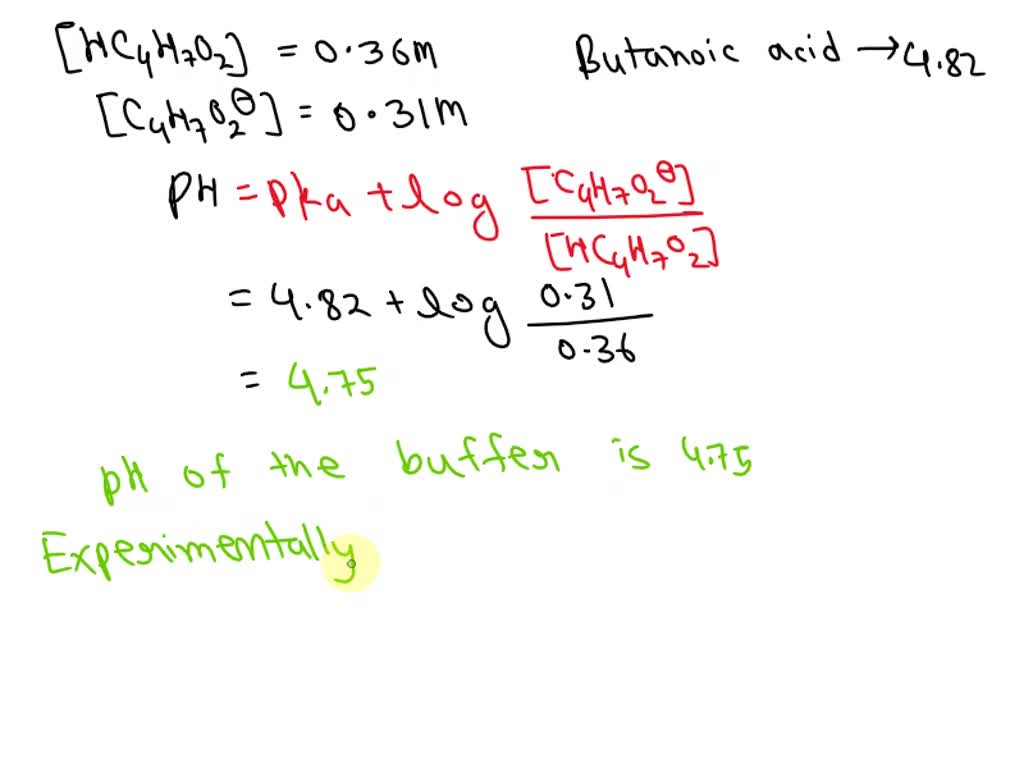 [HC₄H₇O₂] = 0.36M
Butanoic acid → 4.82
[C₄H₇O₂⊖] = 0.31M
PH = Pka + log [C₄H₇O₂⊖] / [HC₄H₇O₂]
= 4.82 + log 0.31 / 0.36
= 4.75
pH of the buffer is 4.75
Experimentally